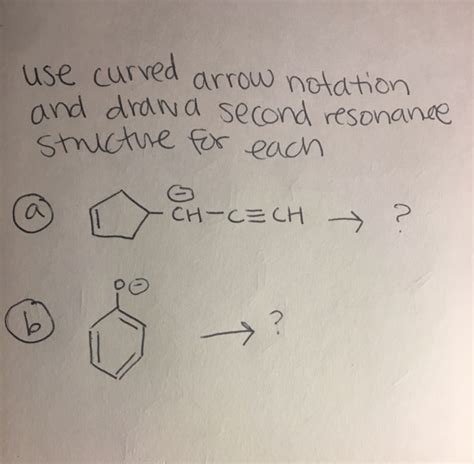 use curved arrow notation
and draw a second resonance
structure for each
a CH-C≡CH → ?
⊖
b O⊖ → ?